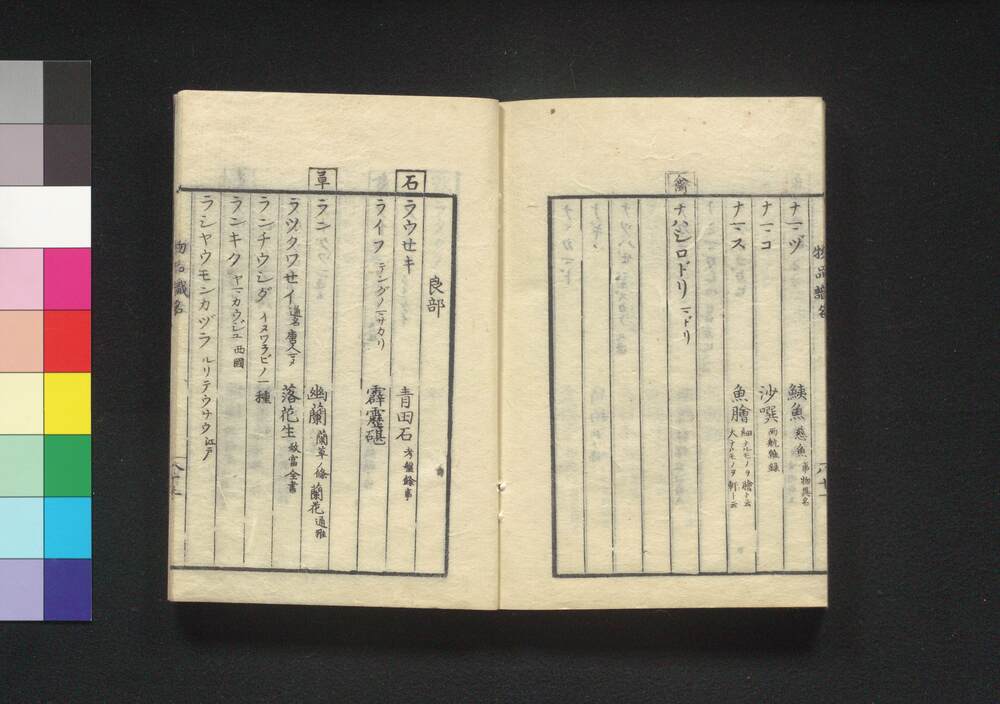 物品識名
ナマヅ 鮧魚 慈魚 事物異名
ナマコ 沙噀 両航雑録
ナマス 魚膾 細ナルモノヲ膾ト云 大ナルモノヲ軒ト云
禽 ナハシロドリ ニドリ
良部
石 ラウセキ 青田石 方盤餘事
ライフ テングノマサカリ 霹靂碪
草 ラン 幽蘭 蘭草ノ條 蘭花 通雅
ラツクワセイ 通名 唐人マメ 落花生 致富全書
ランチウシダ イヌワラビノ一種
ランキク ヤマカウジユ 西國
ラシヤウモンカヅラ ルリテウサウ 江戸
物品識名